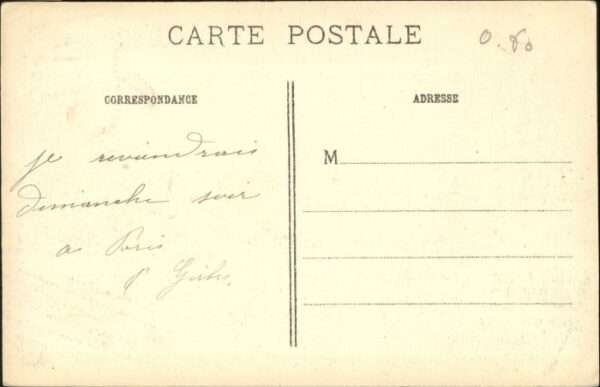 CARTE POSTALE
0.80
CORRESPONDANCE
ADRESSE
je reviendrais
dimanche soir
a Paris
M